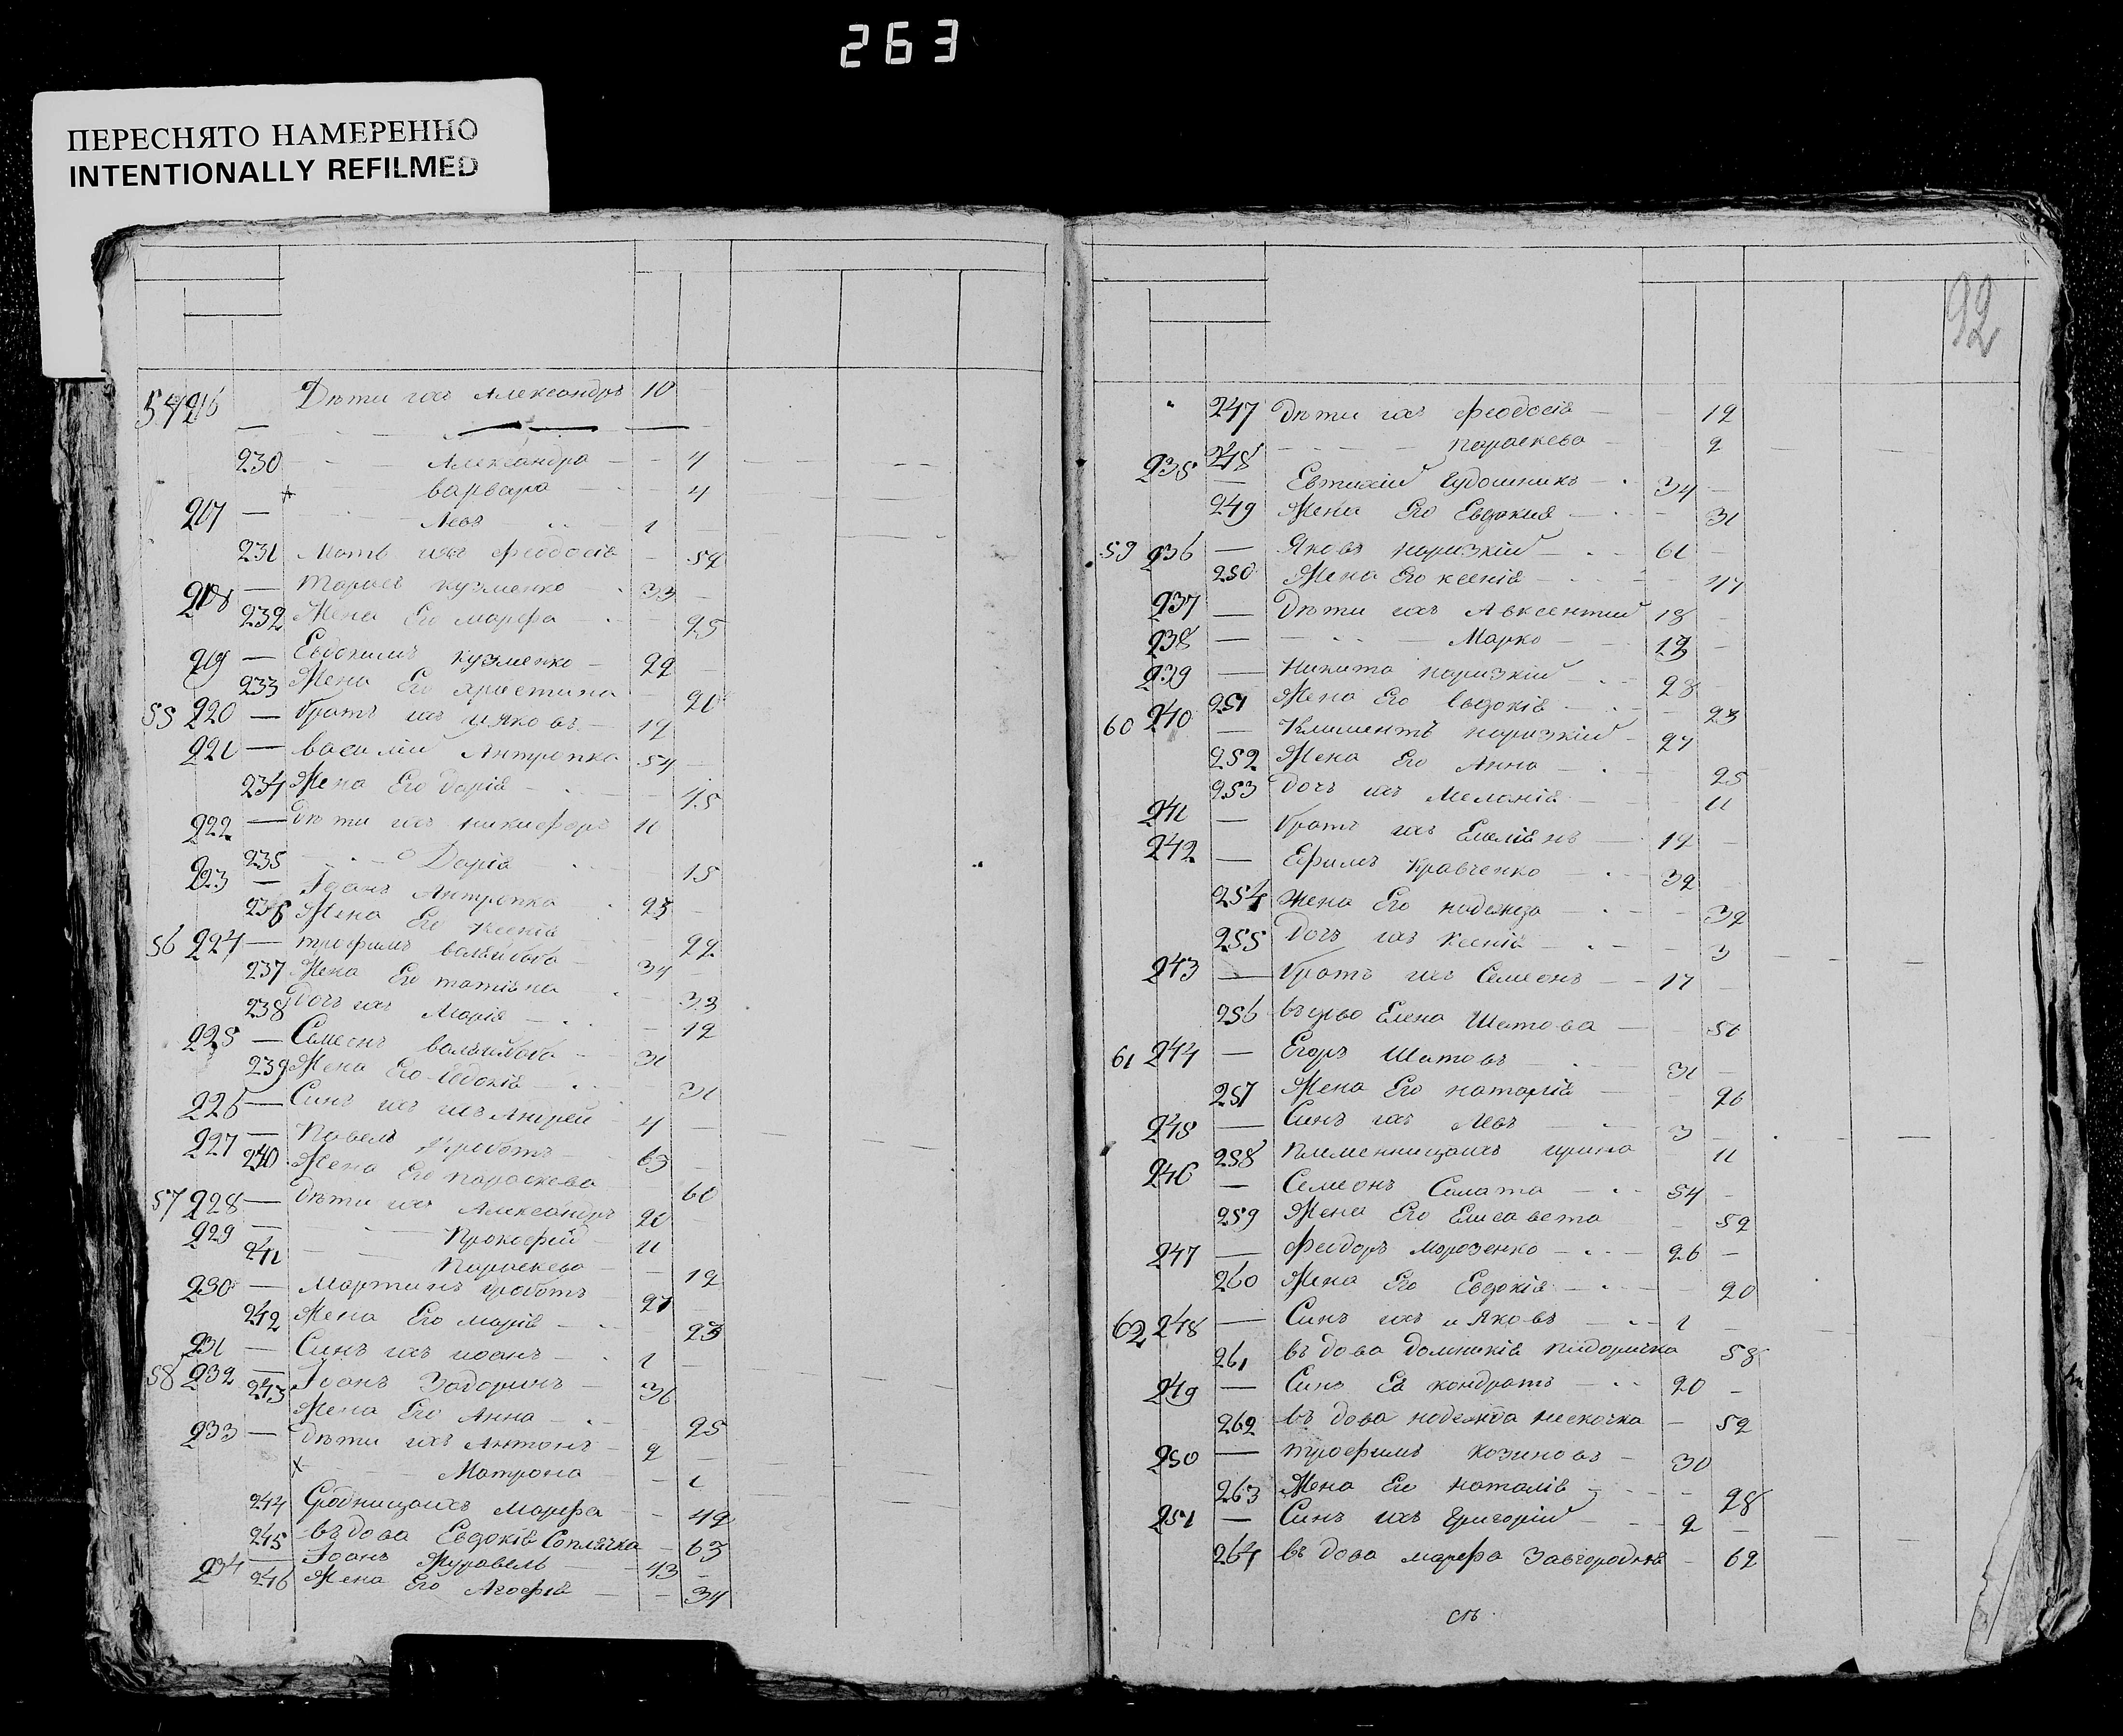 263
ПЕРЕСНЯТО НАМЕРЕННО
INTENTIONALLY REFILMED
54 216 — Дѣти ихъ Александръ 10 —
230 — — Александра — — 4
× варвара — 4
217 — Левъ 1
231 Мать ихъ феодосія — 52
218 — Тарасъ кузменко 33 —
232 Жена Его марфа — 25
219 — Евдокимъ кузменко — 22 —
233 Жена Его христина — 20
55 220 — братъ ихъ иЯковъ — 12
221 — василій Антропка 54 —
234 Жена Его Дарія — — 45
222 — Дѣти ихъ никифоръ 11
235 — Дарія 15
223 — Іоанъ Антропка 23 —
236 Жена Его Ксенія — 22
56 224 — трофимъ 34 —
237 Жена Его татіяна — 33
238 Дочъ ихъ Марія — 12
225 — Семеонъ 31
239 Жена Его Евдокія — 31
226 — Синъ ихъ Андрей 4 —
227 — Павелъ 63 —
240 Жена Его параскева 60
57 228 — Дѣти ихъ Александръ 20
229 — Прокофій 11
241 — Параскева — 12
230 — Мартинъ 27
242 Жена Его марія — 23
231 — Синъ ихъ иоанъ — 1
58 232 — Іоанъ Задоринъ — 36
243 Жена Его Анна — 25
233 — Дѣти ихъ Антонъ — 2 —
× Матрона — 1
244 Сродницаихъ Марфа — 42
245 въдова Евдокія Соплячка — 63
234 — Іоанъ Журавель — 43 —
246 Жена Его Агафія — — 34
92
247 Дѣти ихъ феодосія — 12
248 — — — параскева — 2
235 — Евтихій Гудошникъ — 34 —
249 Жена Его Евдокия — 31
59 236 — Яковъ наризкій — 61 —
250 Жена Его ксенія — 47
237 — Дѣти ихъ Авксентий 18 —
238 — — Марко — 13 —
239 — Никита наризкій — 28
251 Жена Его Евдокія — 23
60 240 — Климентъ наризкій — 27
252 Жена Его Анна — 25
253 Дочъ ихъ Меланія — 11
241 — братъ ихъ Емеліянъ — 12 —
242 — Ефимъ Кравченко — 32 —
254 Жена Его надежда — 32
255 Дочъ ихъ Ксенія — 3
243 — братъ ихъ Семеонъ — 17 —
256 въдова Елена Шатова — 51
61 244 — Егоръ Шатовъ — 31 —
257 Жена Его наталія — 26
245 — Синъ ихъ Левъ — 3 —
258 Племенницаихъ ирина 11
246 — Семеонъ Самата — 54 —
259 Жена Его Елисавета — 52
247 — феодоръ морозенко — 26 —
260 Жена Его Евдокія — 20
62 248 — Синъ ихъ иЯковъ — 1 —
261 въдова домникія 58
249 — Синъ Ея кондратъ — 20 —
262 въдова надежда — 52
250 — трофимъ Козиновъ — 30
263 Жена Его наталія — 28
251 — Синъ ихъ Григорій — 2 —
264 въдова марфа Завгородняя — 62